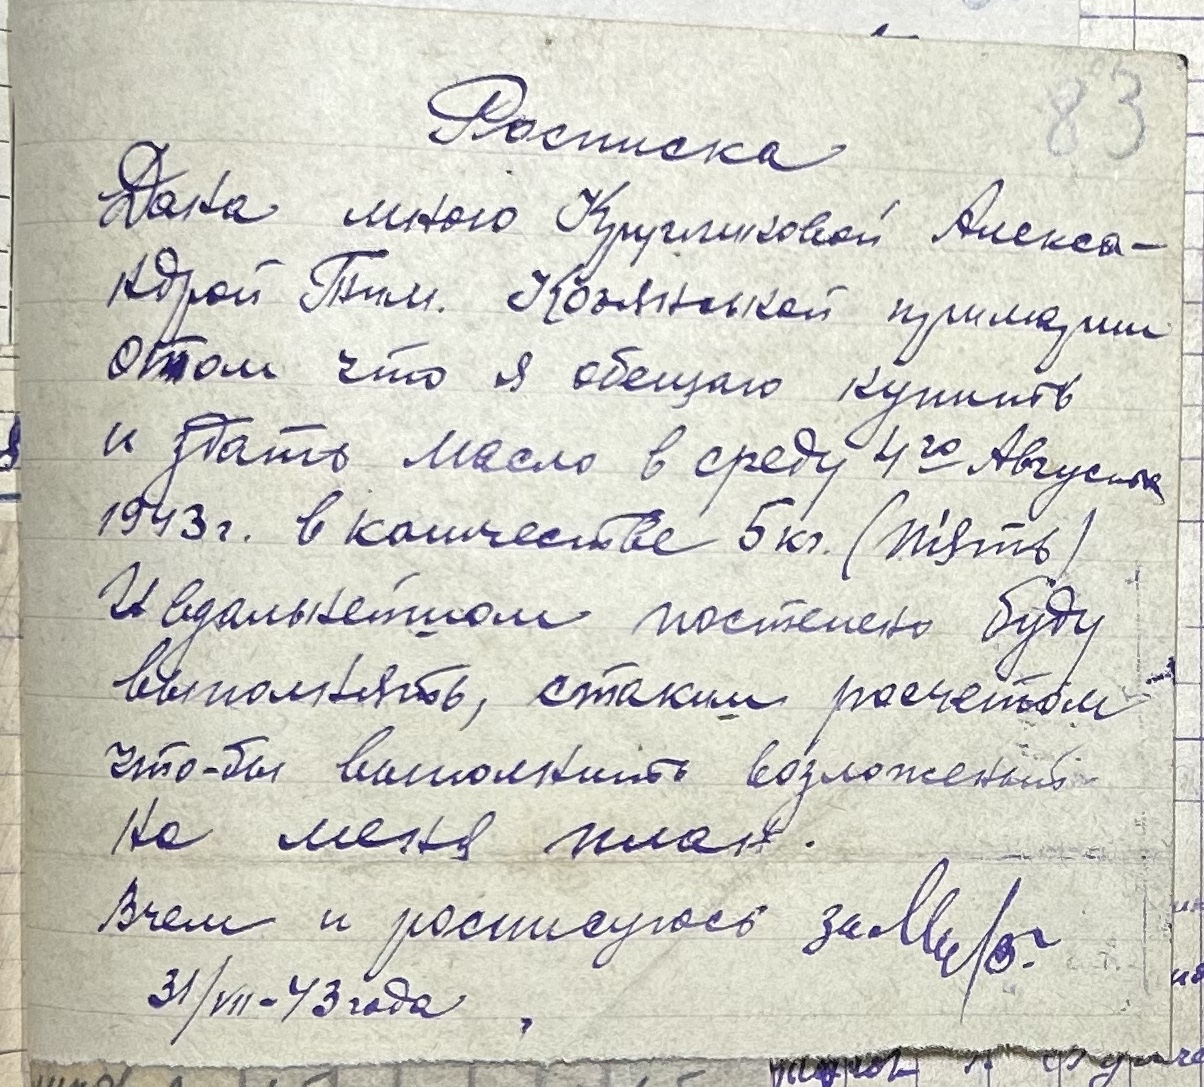 83
Росписка
Дана мною Кругликовой Алекса-
ндрой Тим. Козянськой примарии
отом что я обещаю купить
и здать масло в среду 4го Августа
1943г. в количестве 5кг. (п'ять)
И вдальнейшом постепено буду
выполнять, стаким росчетом
что-бы выполнить возложеный
на меня план.
Вчем и росписуюсь за
31/VII-43 года